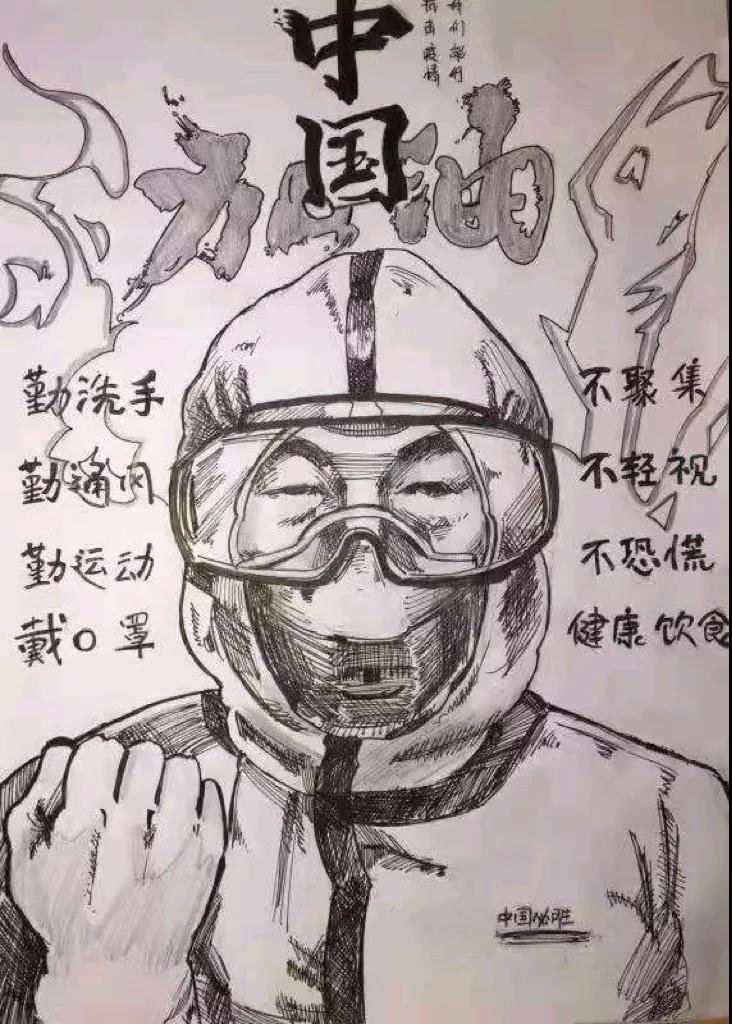 中国
加油
抗击疫情
勤洗手
勤通风
勤运动
戴口罩
不聚集
不轻视
不恐慌
健康饮食
中国必胜